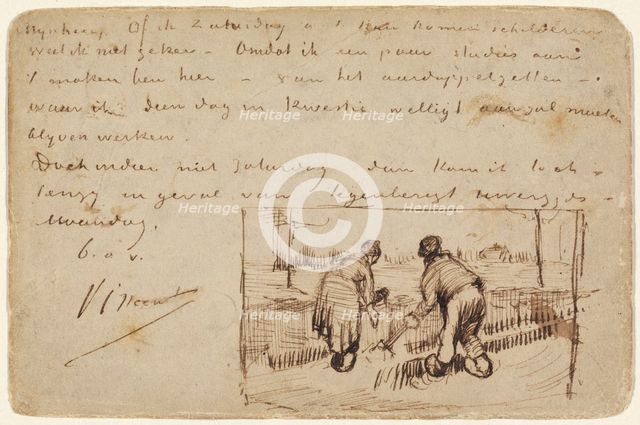 Mijnheer, Of ik Zaturdag a s kan komen schilderen
weet ik niet zeker – Omdat ik een paar studies aan
't maken ben hier – van het aardappelzetten –
waar ik dien dag in kwestie welligt aan zal moeten
blyven werken.
Doch indien niet Zaturdag dan kom ik toch –
tenzy in geval van tegenberigt Uwerzyds –
Maandag.
b. a v.
Vincent
Heritage
Heritage
Heritage
Heritage
Heritage
Heritage
Heritage
Heritage
Heritage
C